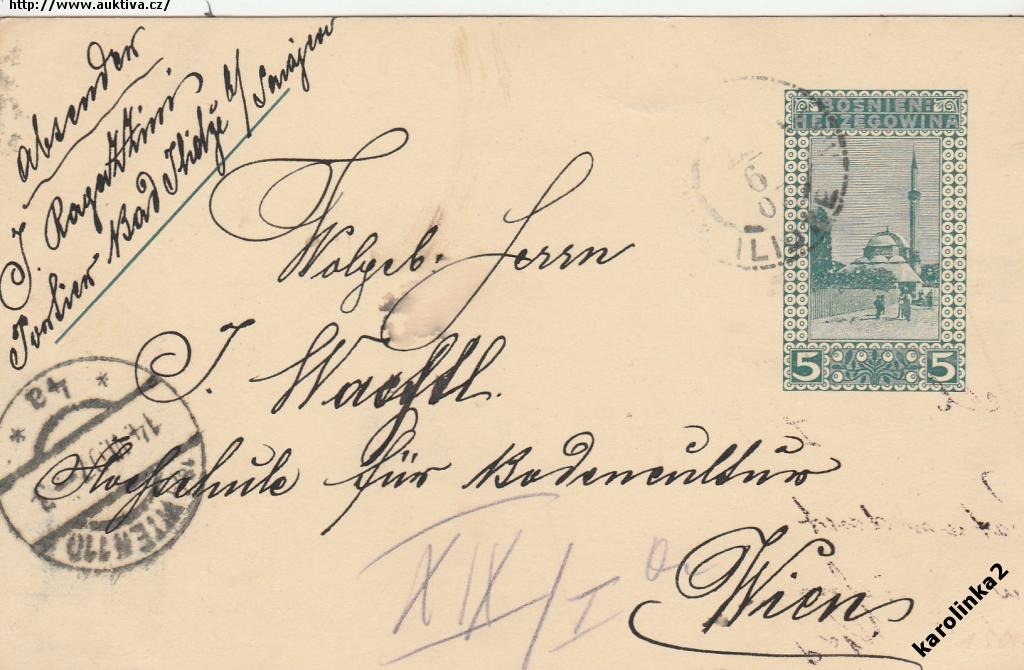 http://www.auktiva.cz/
Absender
J. Ragazzini
Portier Bad Ilidže b/ Sarajevo
BOSNIEN:
HERZEGOWINA
6
5 5
Wolgeb. Herrn
J. Wachtl.
Hochschule für Bodencultur
Wien
XIX/I
4a
WIEN 110
karolinka2